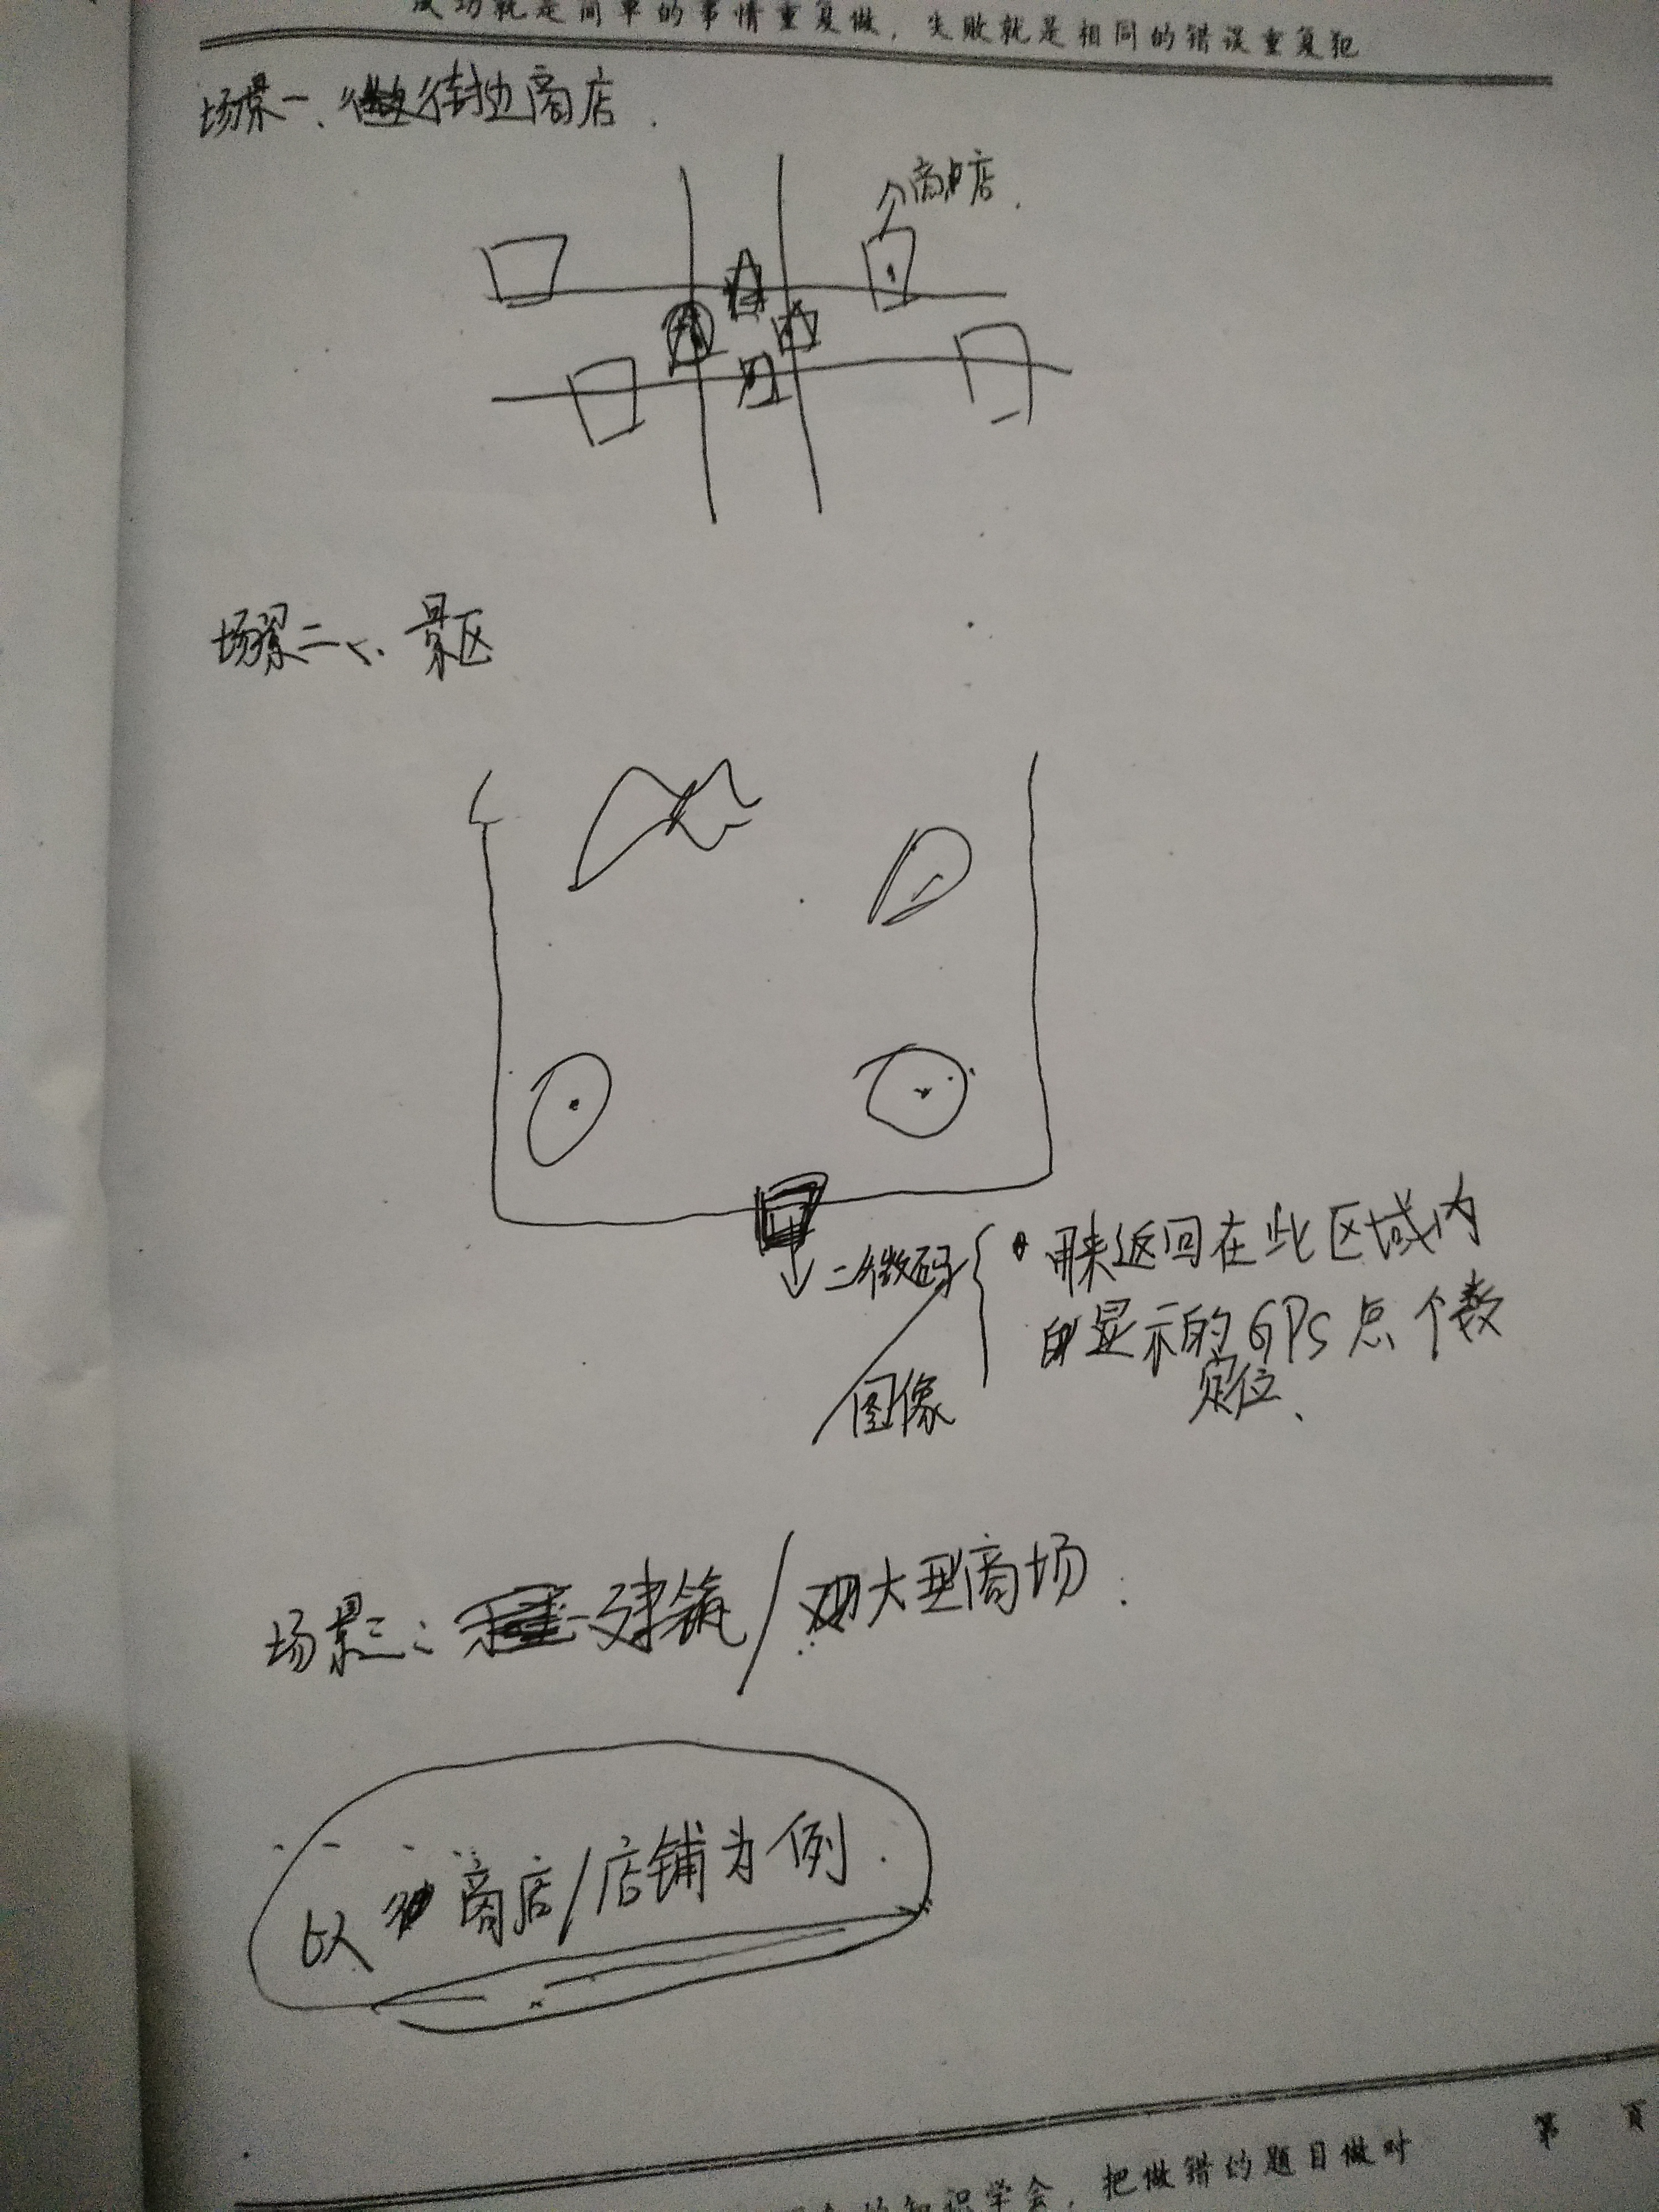 成功就是简单的事情重复做，失败就是相同的错误重复犯
场景一、街边商店.
商店.
场景二、景区
二微码
用来返回在此区域内
显示的GPS点个数
定位、
图像
场景三：建筑/大型商场.
以商店/店铺为例.
第 頁
的知识学会，把做错的题目做对